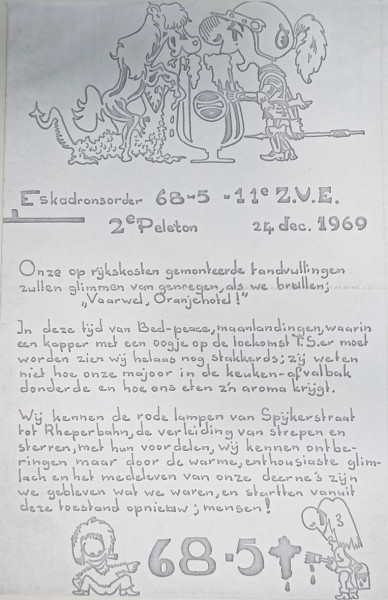 Eskadronsorder 68-5 - 11e Z.V.E.
2e Peleton 24 dec. 1969
Onze op rijkskosten gemonteerde tandvullingen
zullen glimmen van genoegen, als we brullen;
„Vaarwel, Oranjehotel!"
In deze tijd van Bed-peace, maanlandingen, waarin
een kapper met een oogje op de toekomst T.S.er moet
worden zien wij helaas nog stakkerds; zij weten
niet hoe onze majoor in de keuken-afvalbak
donderde en hoe ons eten z'n aroma krijgt.
Wij kennen de rode lampen van Spijkerstraat
tot Rheperbahn, de verleiding van strepen en
sterren, met hun voordelen, wij kennen ontbe-
ringen maar door de warme, enthousiaste glim-
lach en het medeleven van onze deerne's zijn
we gebleven wat we waren, en startten vanuit
deze toestand opnieuw; mensen!
3
68-5†